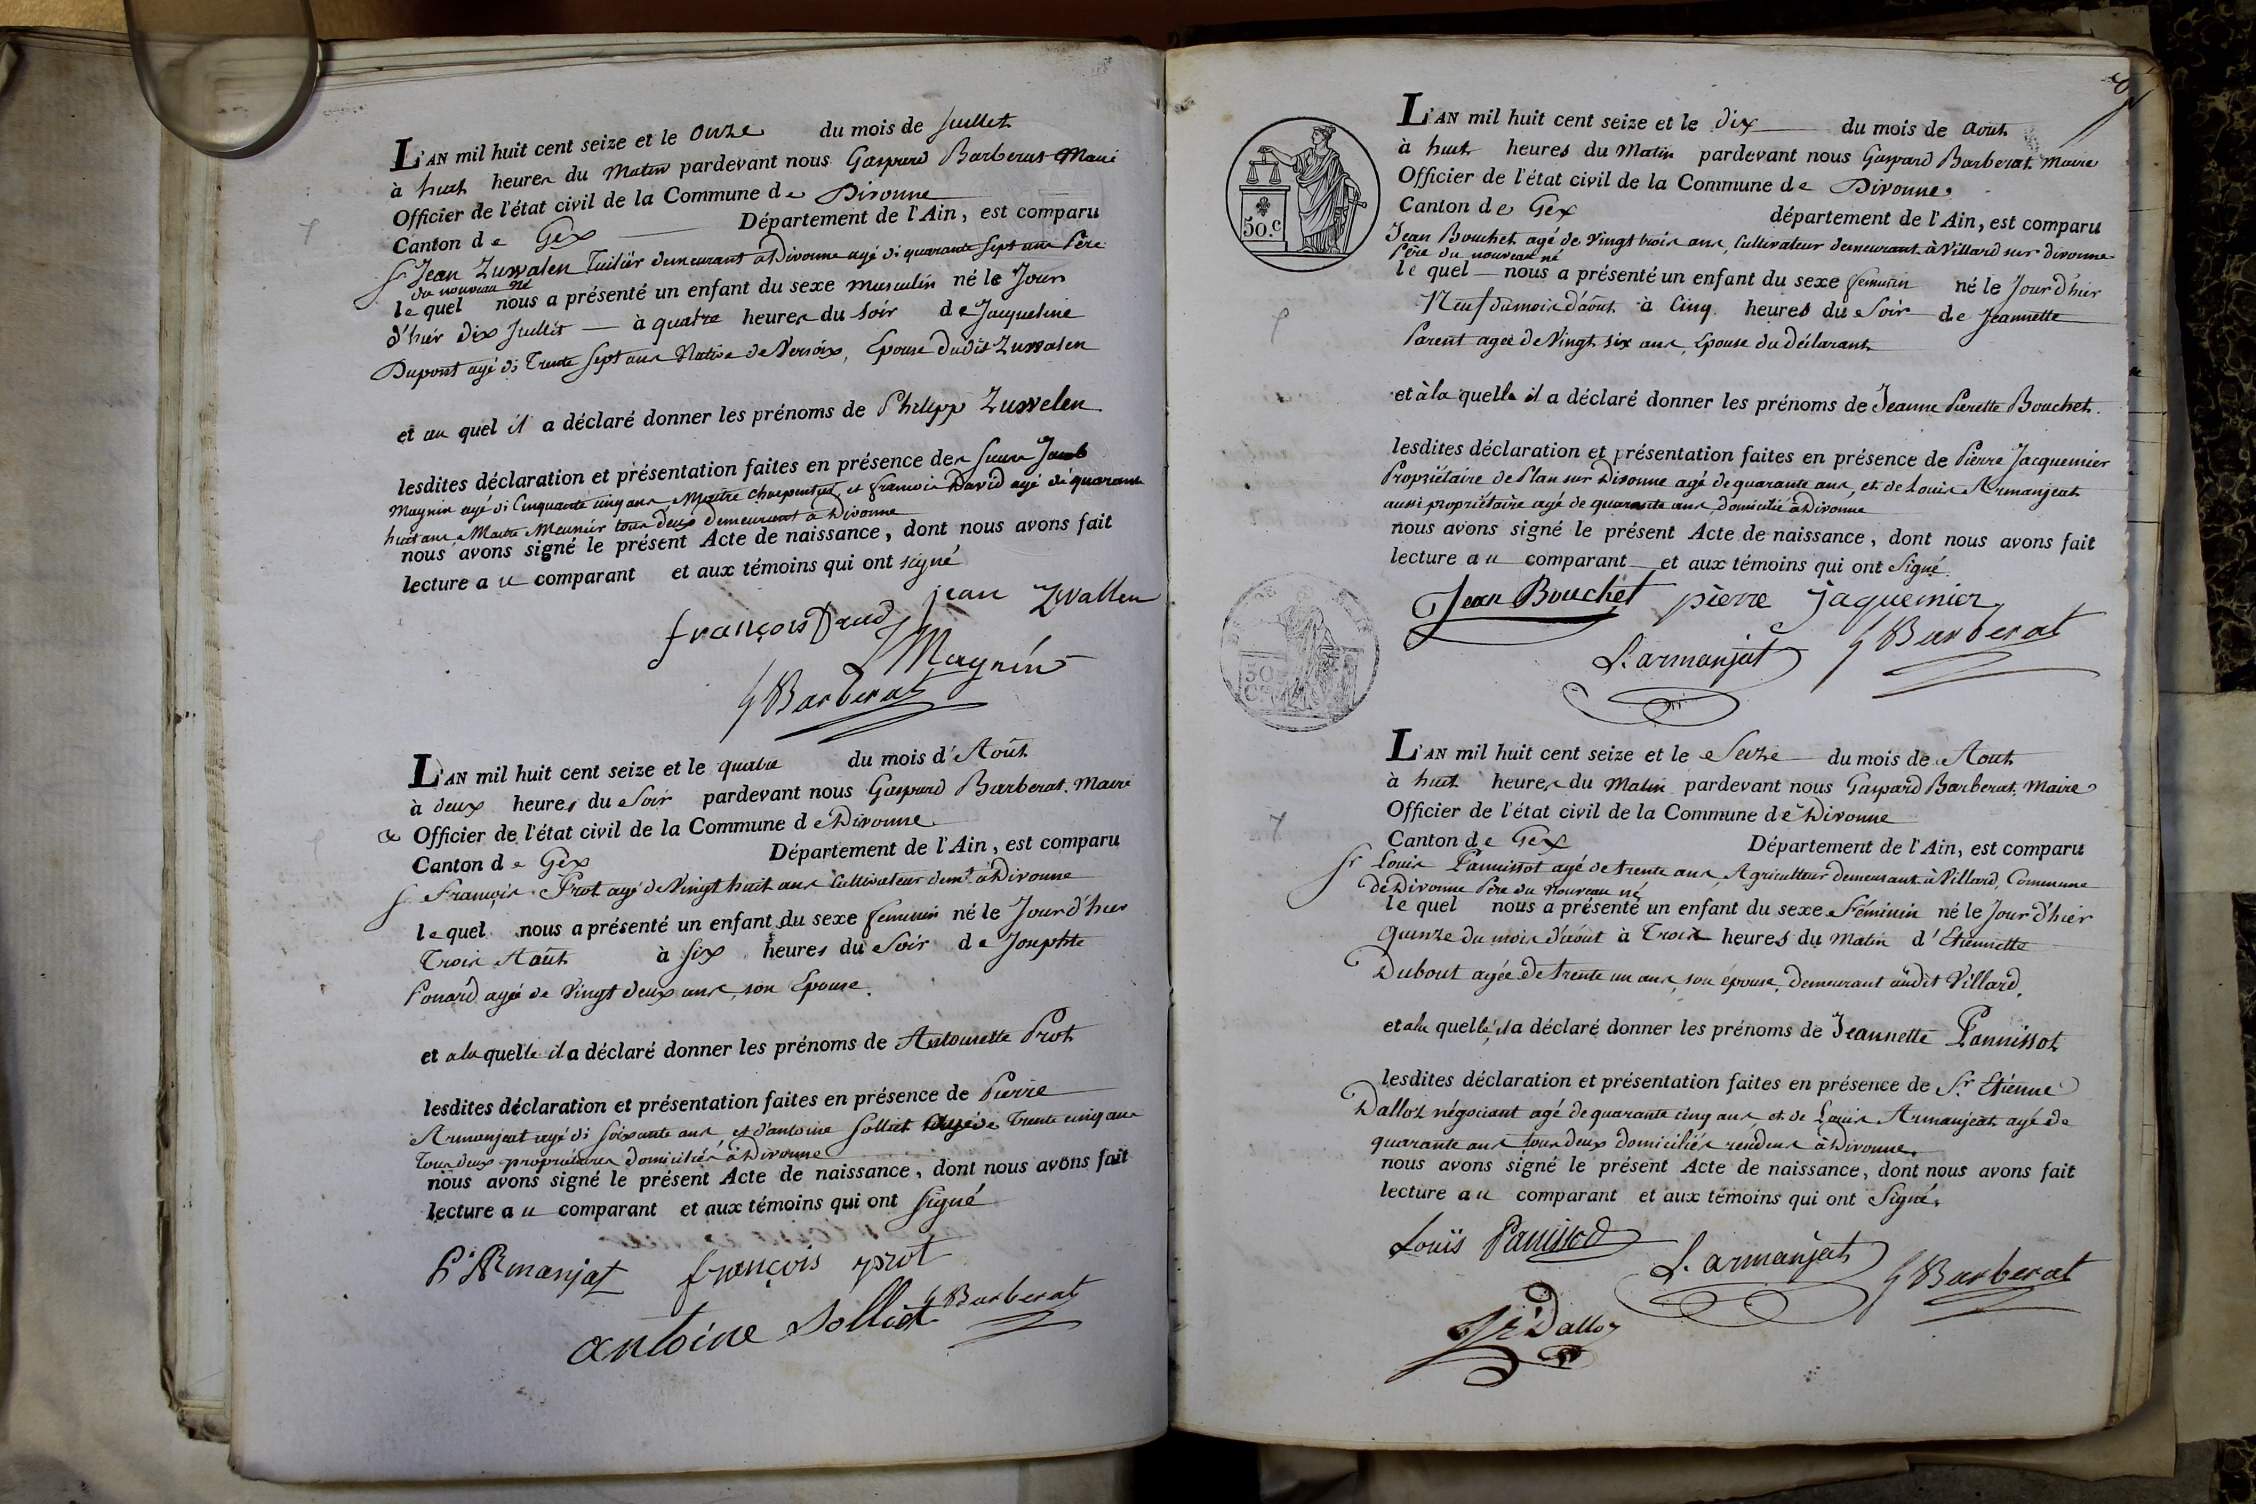 L'AN mil huit cent seize et le onze du mois de Juillet
à huit heures du Matin pardevant nous Gaspard Barberat Maire
Officier de l'état civil de la Commune de Divonne
Canton de Gex Département de l'Ain, est comparu
Sr Jean Zuwalen Tuilier demeurant à Divonne agé de quarante sept ans Père
du nouveau né
le quel nous a présenté un enfant du sexe masculin né le Jour
d'hier dix Juillet à quatre heures du soir de Jacqueline
Dupont agé de Trente sept ans Native de Versoix, Epouse dudit Zuwalen
et au quel il a déclaré donner les prénoms de Philipp Zuwelen
lesdites déclaration et présentation faites en présence des Sieurs Jacob
Magnin agé de Cinquante cinq ans Maitre charpentier, et francois David agé de quarante
huit ans Maitre Meunier tous deux demeurant à Divonne
nous avons signé le présent Acte de naissance, dont nous avons fait
lecture au comparant et aux témoins qui ont signé
jean Zvallen
françois David
J Magnin
G Barberat
L'AN mil huit cent seize et le quatre du mois d'Août
à deux heures du Soir pardevant nous Gaspard Barberat. Maire
& Officier de l'état civil de la Commune de Divonne
Canton de Gex Département de l'Ain, est comparu
Sr François Prot agé de Vingt huit ans Cultivateur demt à Divonne
le quel nous a présenté un enfant du sexe feminin né le Jour d'hier
Trois Août à six heures du Soir de Josephte
Ponard agée de Vingt deux ans, son Epouse.
et a la quelle il a déclaré donner les prénoms de Antoinette Prot
lesdites déclaration et présentation faites en présence de Pierre
Armanjeat agé de soixante ans et d'antoine Solliet agé de Trente cinq ans
Tous deux propriétaires domiciliés à Divonne
nous avons signé le présent Acte de naissance, dont nous avons fait
lecture au comparant et aux témoins qui ont signé
P. Armanjat françois prot
G Barberat
antoine Solliet
50.c
L'AN mil huit cent seize et le dix du mois de Aout
à huit heures du Matin pardevant nous Gaspard Barberat. Maire
Officier de l'état civil de la Commune de Divonne
Canton de Gex département de l'Ain, est comparu
Jean Bouchet agé de vingt trois ans, Cultivateur demeurant à Villard sur divonne
Père du nouveau né
le quel nous a présenté un enfant du sexe feminin né le Jour d'hier
Neuf du mois d'août à Cinq heures du Soir de Jeannette
Parent agée de Vingt six ans, Epouse du déclarant
et à la quelle il a déclaré donner les prénoms de Jeanne Pierette Bouchet.
lesdites déclaration et présentation faites en présence de Pierre Jacquemier
Propriétaire de Plan sur Divonne agé de quarante ans, et de Louis Armanjeat
aussi propriétaire agé de quarante ans domicilié à Divonne
nous avons signé le présent Acte de naissance, dont nous avons fait
lecture au comparant et aux témoins qui ont Signé.
Jean Bouchet pierre jaquemier
L. armanjat G Barberat
L'AN mil huit cent seize et le Seize du mois de Aout
à huit heures du Matin pardevant nous Gaspard Barberat. Maire
Officier de l'état civil de la Commune de Divonne
Canton de Gex Département de l'Ain, est comparu
Sr Louis Pannissot agé de trente ans, Agriculteur demeurant à Villard, Commune
de Divonne Père du nouveau né
le quel nous a présenté un enfant du sexe Féminin né le Jour d'hier
Quinze du mois d'août à Trois heures du Matin d'Etiennette
Dubout agée de trente un ans, son épouse, demeurant audit Villard,
et a la quelle, il a déclaré donner les prénoms de Jeannette Pannissot
lesdites déclaration et présentation faites en présence de Sr Etienne
Dalloz négociant agé de quarante cinq ans, et de Louis Armanjeat agé de
quarante ans tous deux domiciliés à Divonne.
nous avons signé le présent Acte de naissance, dont nous avons fait
lecture au comparant et aux témoins qui ont Signé.
Louïs Panissod L. armanjat G Barberat
Dalloz